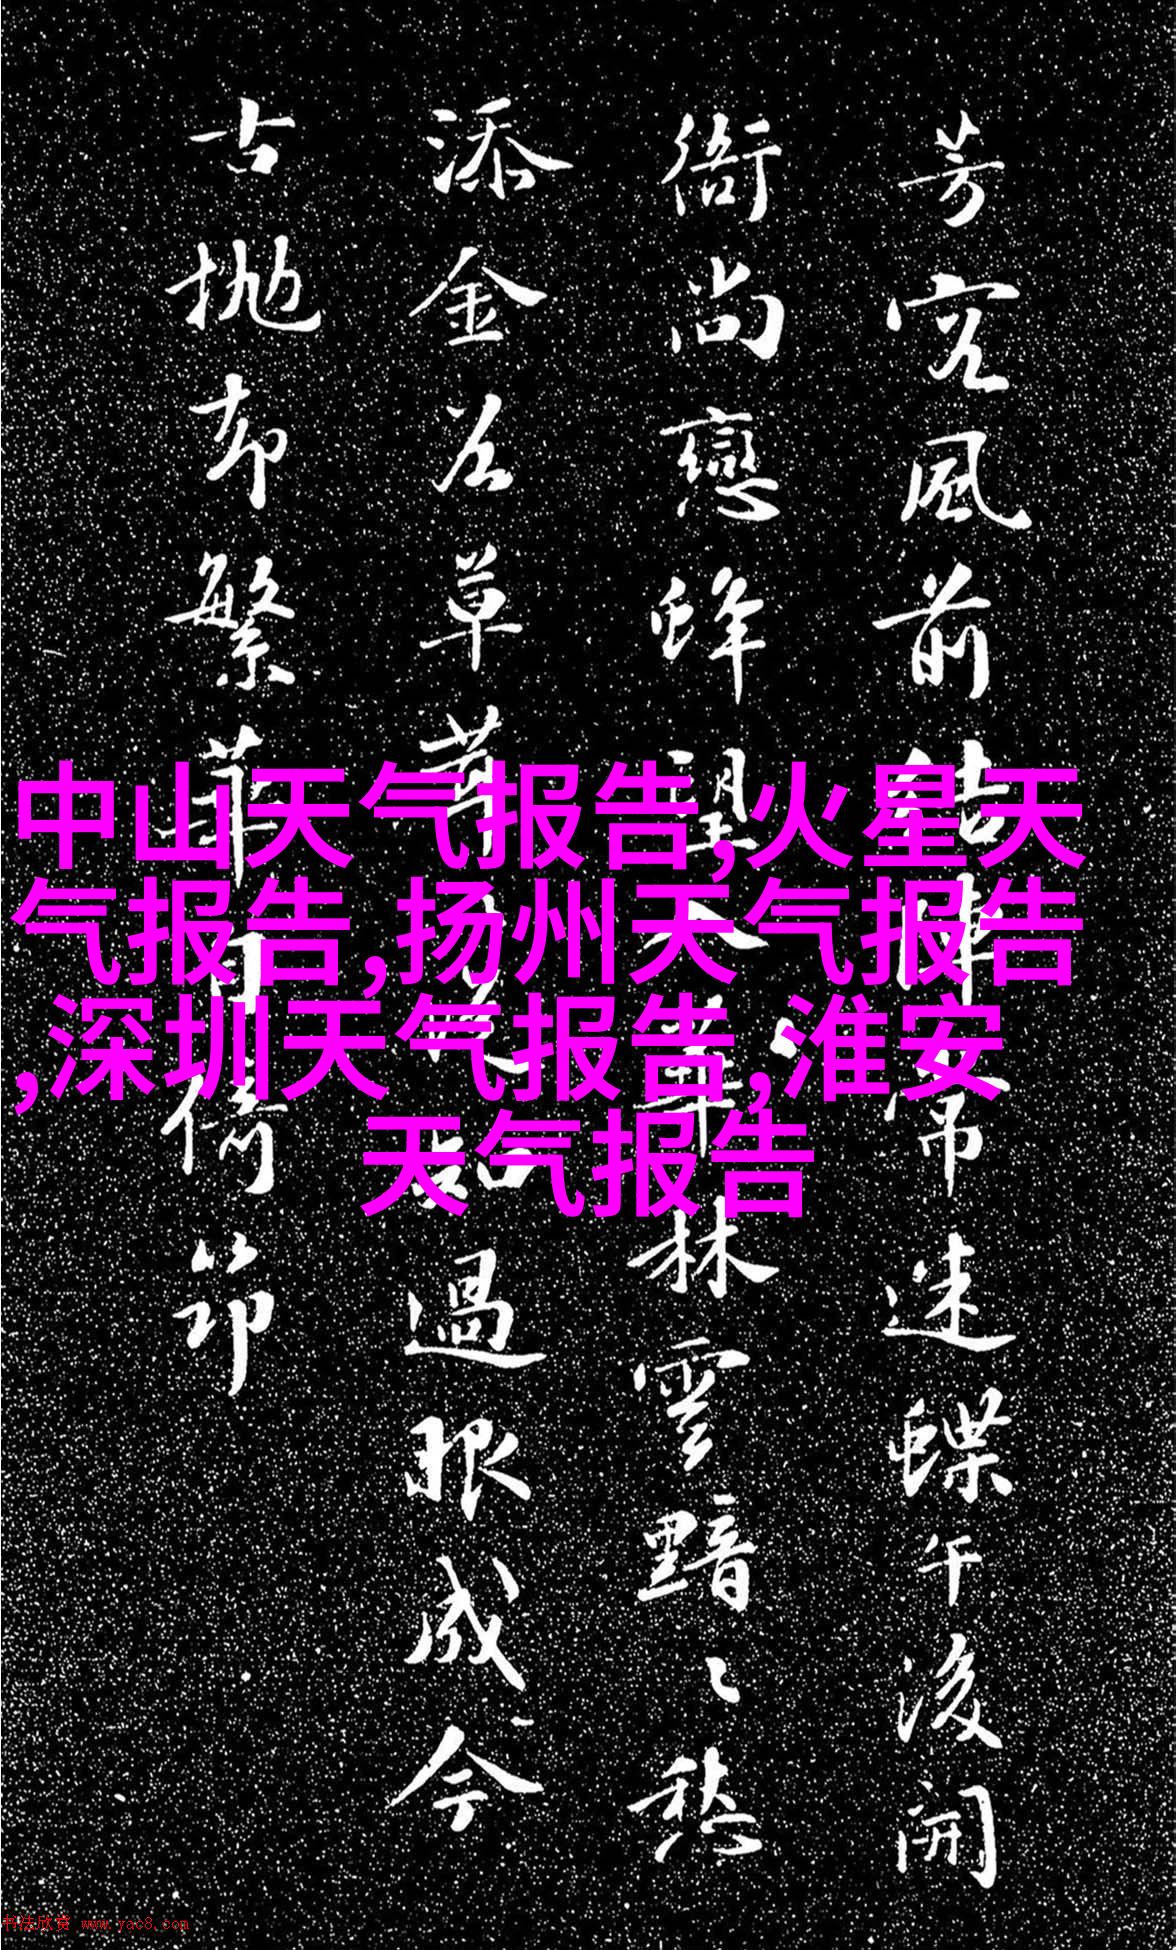 芳容風前結
常迷蝶午後開
衙尚戀蜂
林雲黯ミ愁
添金谷草
過眼成今
古拋却繁華
倚節
中山天气报告,火星天
气报告,扬州天气报告
,深圳天气报告,淮安
天气报告
书法欣赏 www.yac8.com